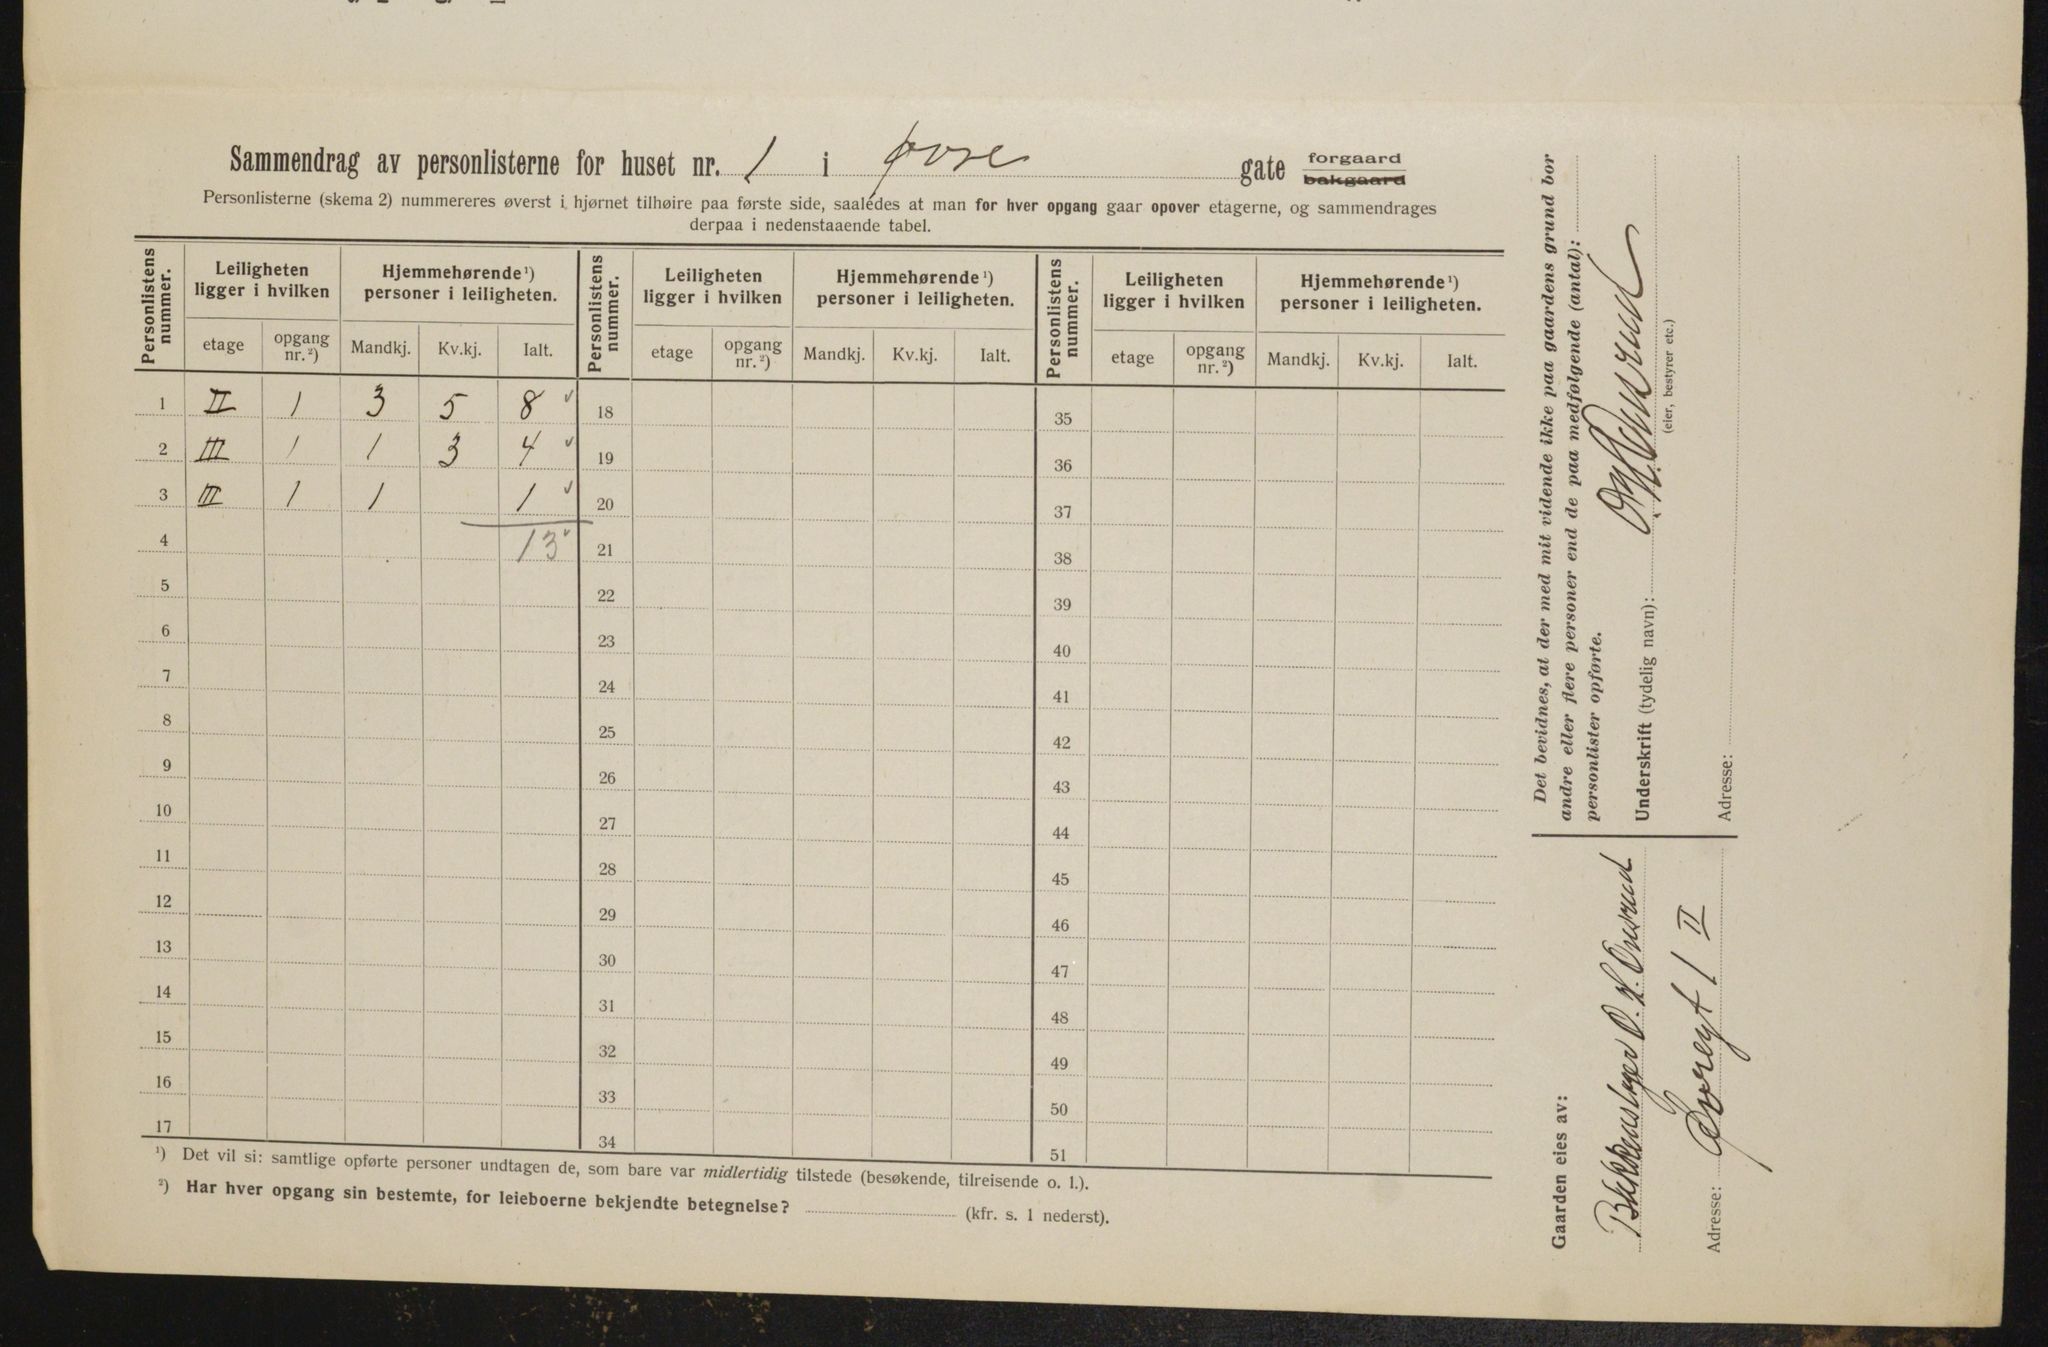 Sammendrag av personlisterne for huset nr. 1 i Øvre gate forgaard bakgaard
Personlisterne (skema 2) nummereres øverst i hjørnet tilhøire paa første side, saaledes at man for hver opgang gaar opover etagerne, og sammendrages
derpaa i nedenstaaende tabel.
Personlistens nummer. Leiligheten ligger i hvilken Hjemmehørende ¹) personer i leiligheten. Personlistens nummer. Leiligheten ligger i hvilken Hjemmehørende ¹) personer i leiligheten. Personlistens nummer. Leiligheten ligger i hvilken Hjemmehørende ¹) personer i leiligheten.
etage opgang nr. ²) Mandkj. Kv.kj. Ialt. etage opgang nr. ²) Mandkj. Kv.kj. Ialt. etage opgang nr. ²) Mandkj. Kv.kj. Ialt.
1 II 1 3 5 8 18 35
2 III 1 1 3 4 19 36
3 III 1 1 1 20 37
4 13 21 38
5 22 39
6 23 40
7 24 41
8 25 42
9 26 43
10 27 44
11 28 45
12 29 46
13 30 47
14 31 48
15 32 49
16 33 50
17 34 51
¹) Det vil si: samtlige opførte personer undtagen de, som bare var midlertidig tilstede (besøkende, tilreisende o. l.).
²) Har hver opgang sin bestemte, for leieboerne bekjendte betegnelse? (kfr. s. 1 nederst).
Det bevidnes, at der med mit vidende ikke paa gaardens grund bor
andre eller flere personer end de paa medfølgende (antal):
personlister opførte.
Underskrift (tydelig navn): Onsrud
(eier, bestyrer etc.)
Adresse:
Gaarden eies av:
O. H. Onsrud
Adresse: Øvregt 1 II